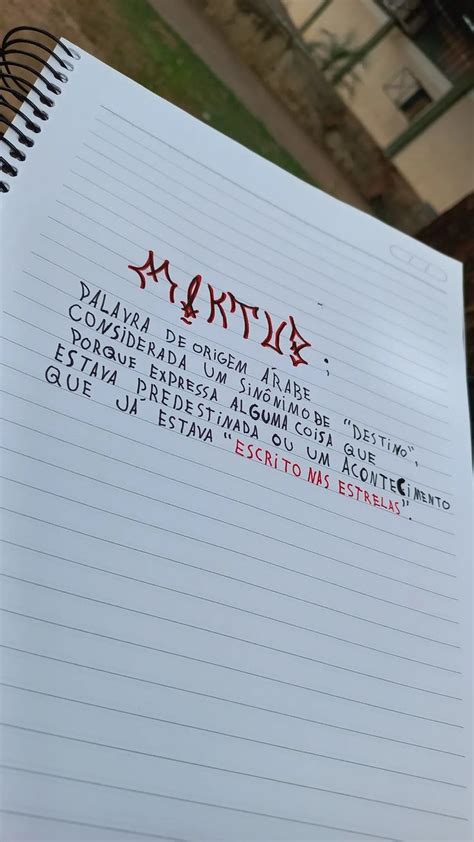 MAKTUB;
PALAVRA DE ORIGEM ÁRABE
CONSIDERADA UM SINÔNIMO BE "DESTINO",
PORQUE EXPRESSA ALGUMA COISA QUE
ESTAVA PREDESTINADA OU UM ACONTECIMENTO
QUE JÁ ESTAVA "ESCRITO NAS ESTRELAS".